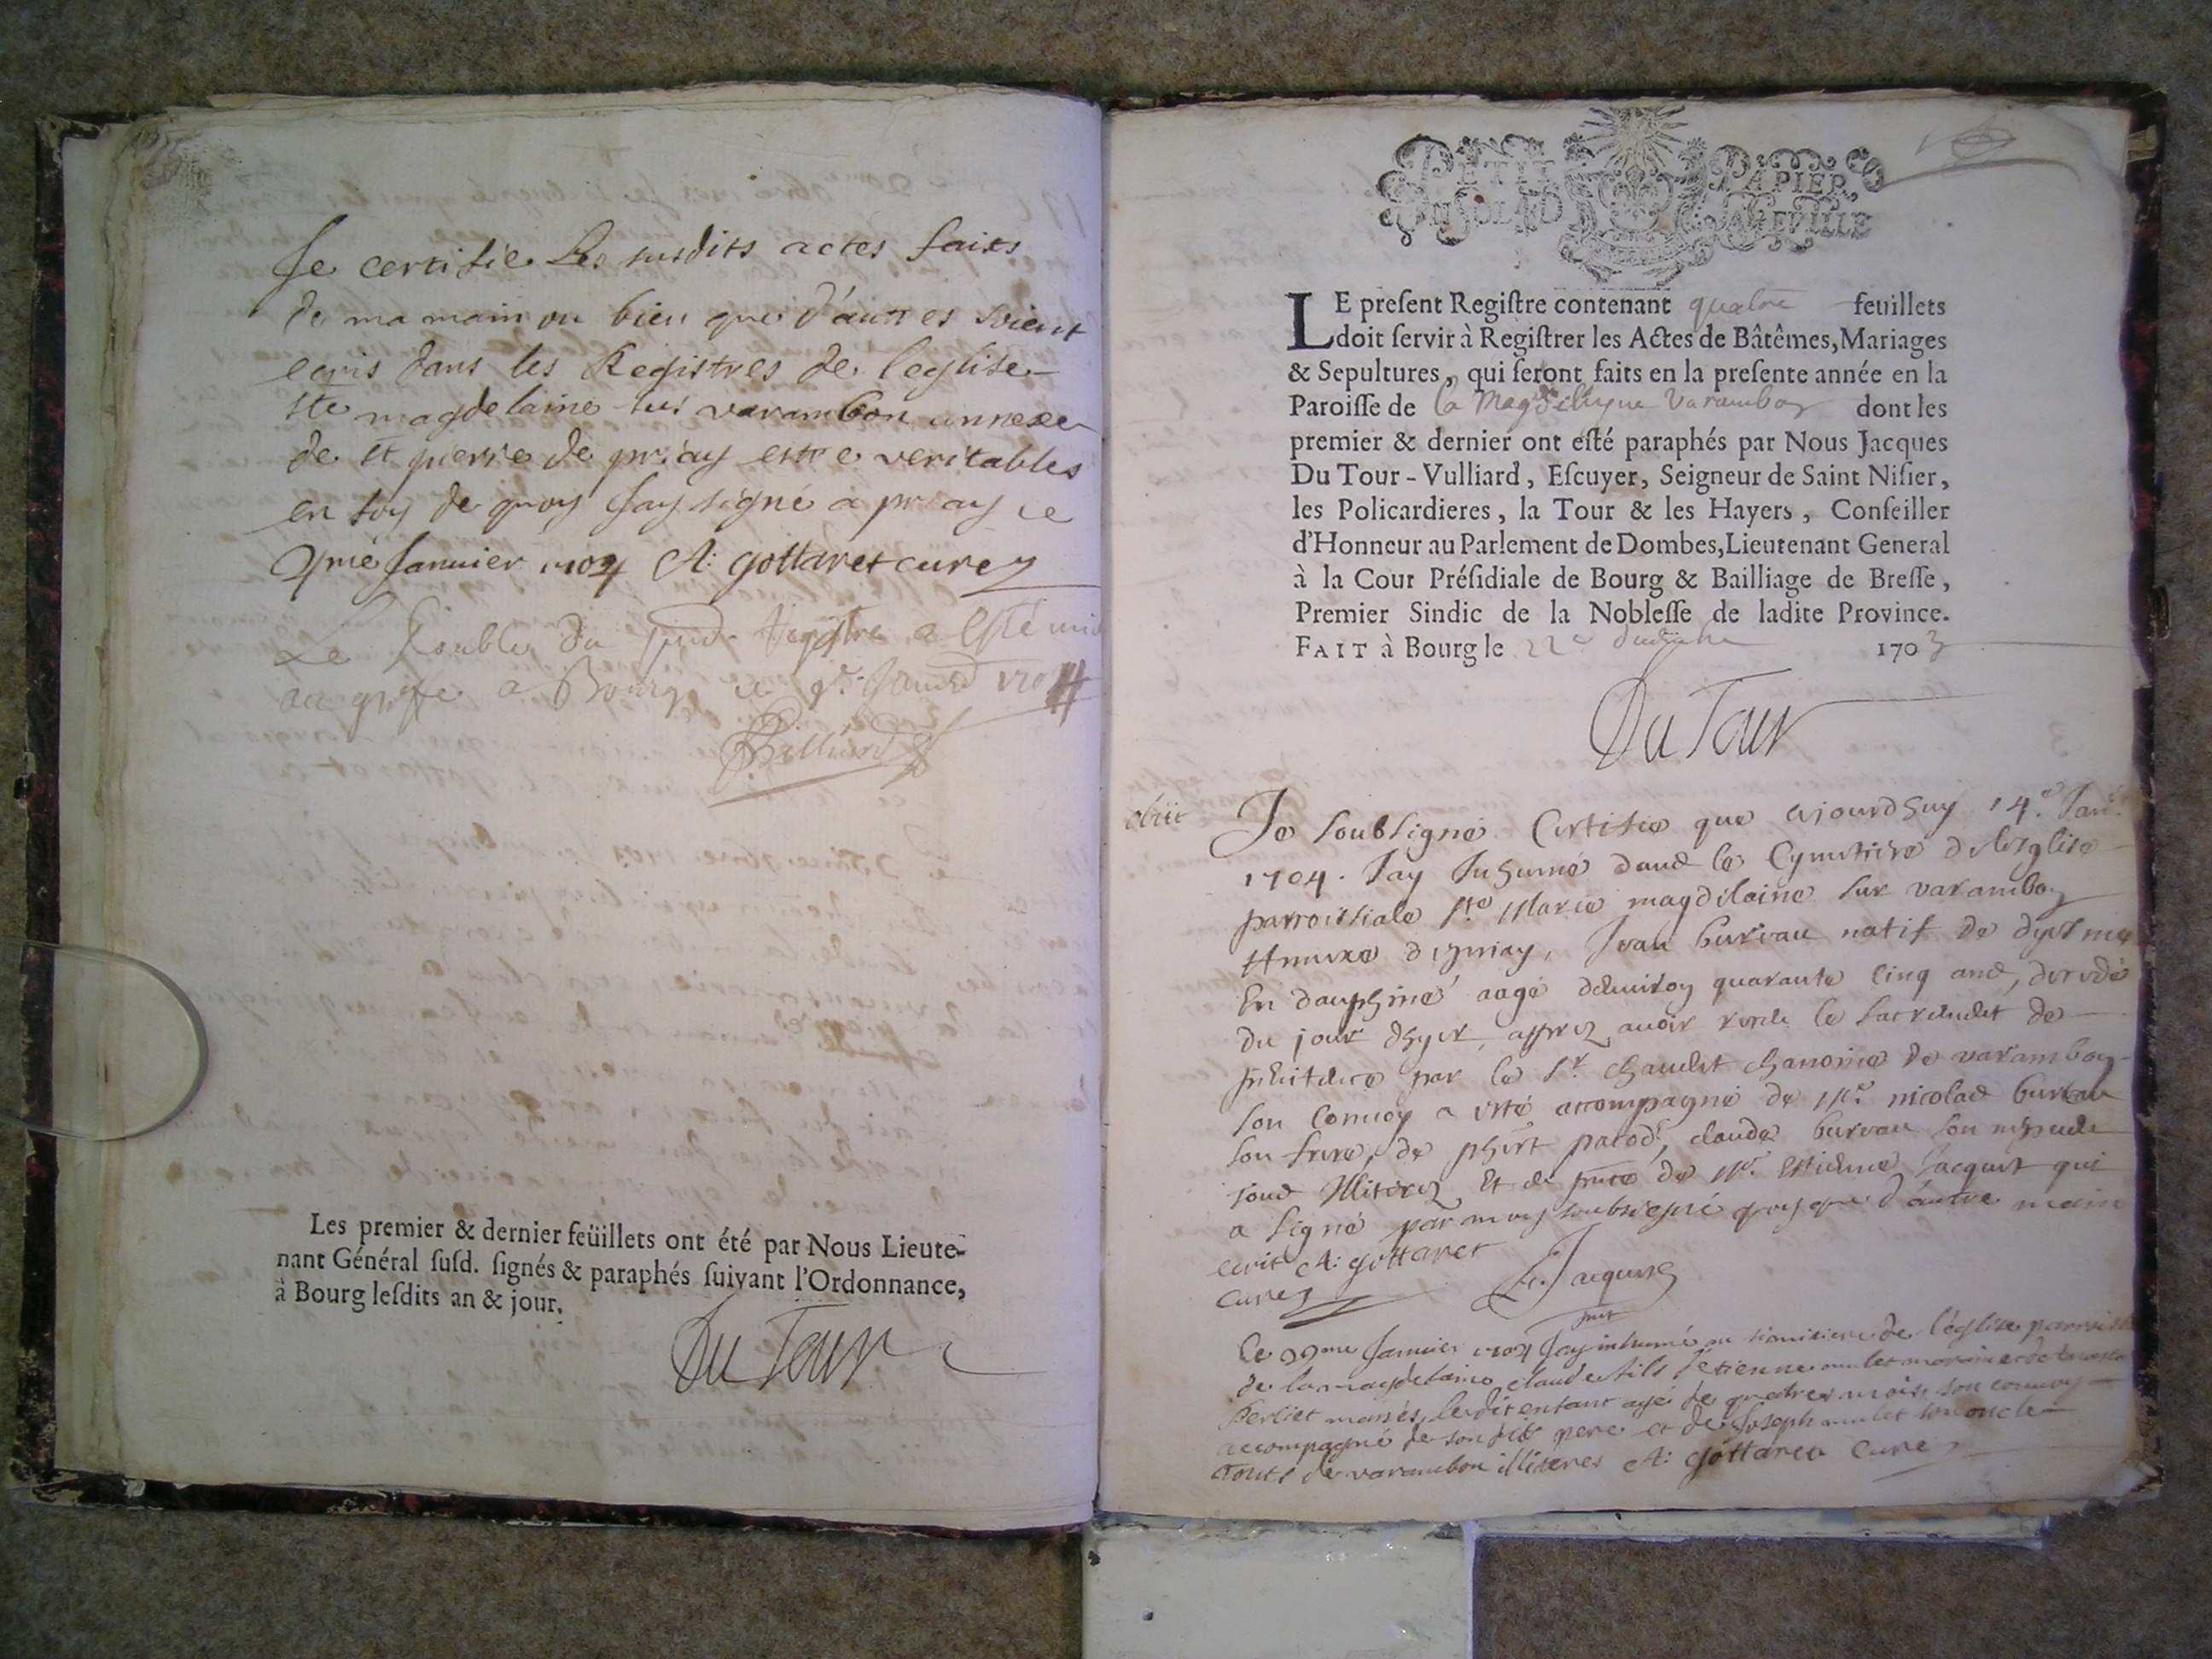 Je certifie les susdits actes faits
de ma main ou bien que d'autres soient
ecris dans les Registres de l'eglise
ste magdelaine sus varambon annexe
de st pierre de priay estre veritables
en foy de quoy Jay signé a priay ce
4me Janvier 1704 A: gottaret curez
Le double du Registre a esté mis
au greffe a Bourg le 1704
Billiard
Les premier & dernier feüillets ont été par Nous Lieute-
nant Général susd. signés & paraphés suivant l'Ordonnance,
à Bourg lesdits an & jour.
Du Tour
PETIT PAPIER
UN SOL LA FEVILLE
LE present Registre contenant quatre feuillets
doit servir à Registrer les Actes de Bâtêmes, Mariages
& Sepultures, qui seront faits en la presente année en la
Paroisse de la Magdeleyne Varambon dont les
premier & dernier ont esté paraphés par Nous Jacques
Du Tour-Vulliard, Escuyer, Seigneur de Saint Nisier,
les Policardieres, la Tour & les Hayers, Conseiller
d'Honneur au Parlement de Dombes, Lieutenant General
à la Cour Présidiale de Bourg & Bailliage de Bresse,
Premier Sindic de la Noblesse de ladite Province.
FAIT à Bourg le 22e 1703
Du Tour
obiit
Je soubsigné Certifie que aiourdhuy 14.e Janr.
1704. Jay Inhumé dans le Cymetiere de leglise
parroissiale Ste Marie magdelaine sur varambon
Annexe de priay, Jean bureau natif de
En dauphiné aagé denviron quarante cinq ans, decedé
du jour dhyer, apprez avoir receu le sacrement de
penitence par le Sr chanoine de varambon
son convoy a esté accompagné de Mr. nicolas bureau
son frere, de claude bureau son nepveu
tous Illiterez, Et de Mr. Estienne Jacquet qui
a signé par moy soubsigné quoyque d'autre main
ecrit A: gottaret
curez Jacquet
Le 22me Janvier 1704 Jay inhumé au cimitiere de l'eglise parroissi
de la magdelaine, claude fils d'etienne mulet
Perliet mariés, ledit enfant agé de quatre mois, son convoy
accompagné de son dit pere et de Joseph mulet son oncle
touts de varambon illiteres A: gottaret Curez